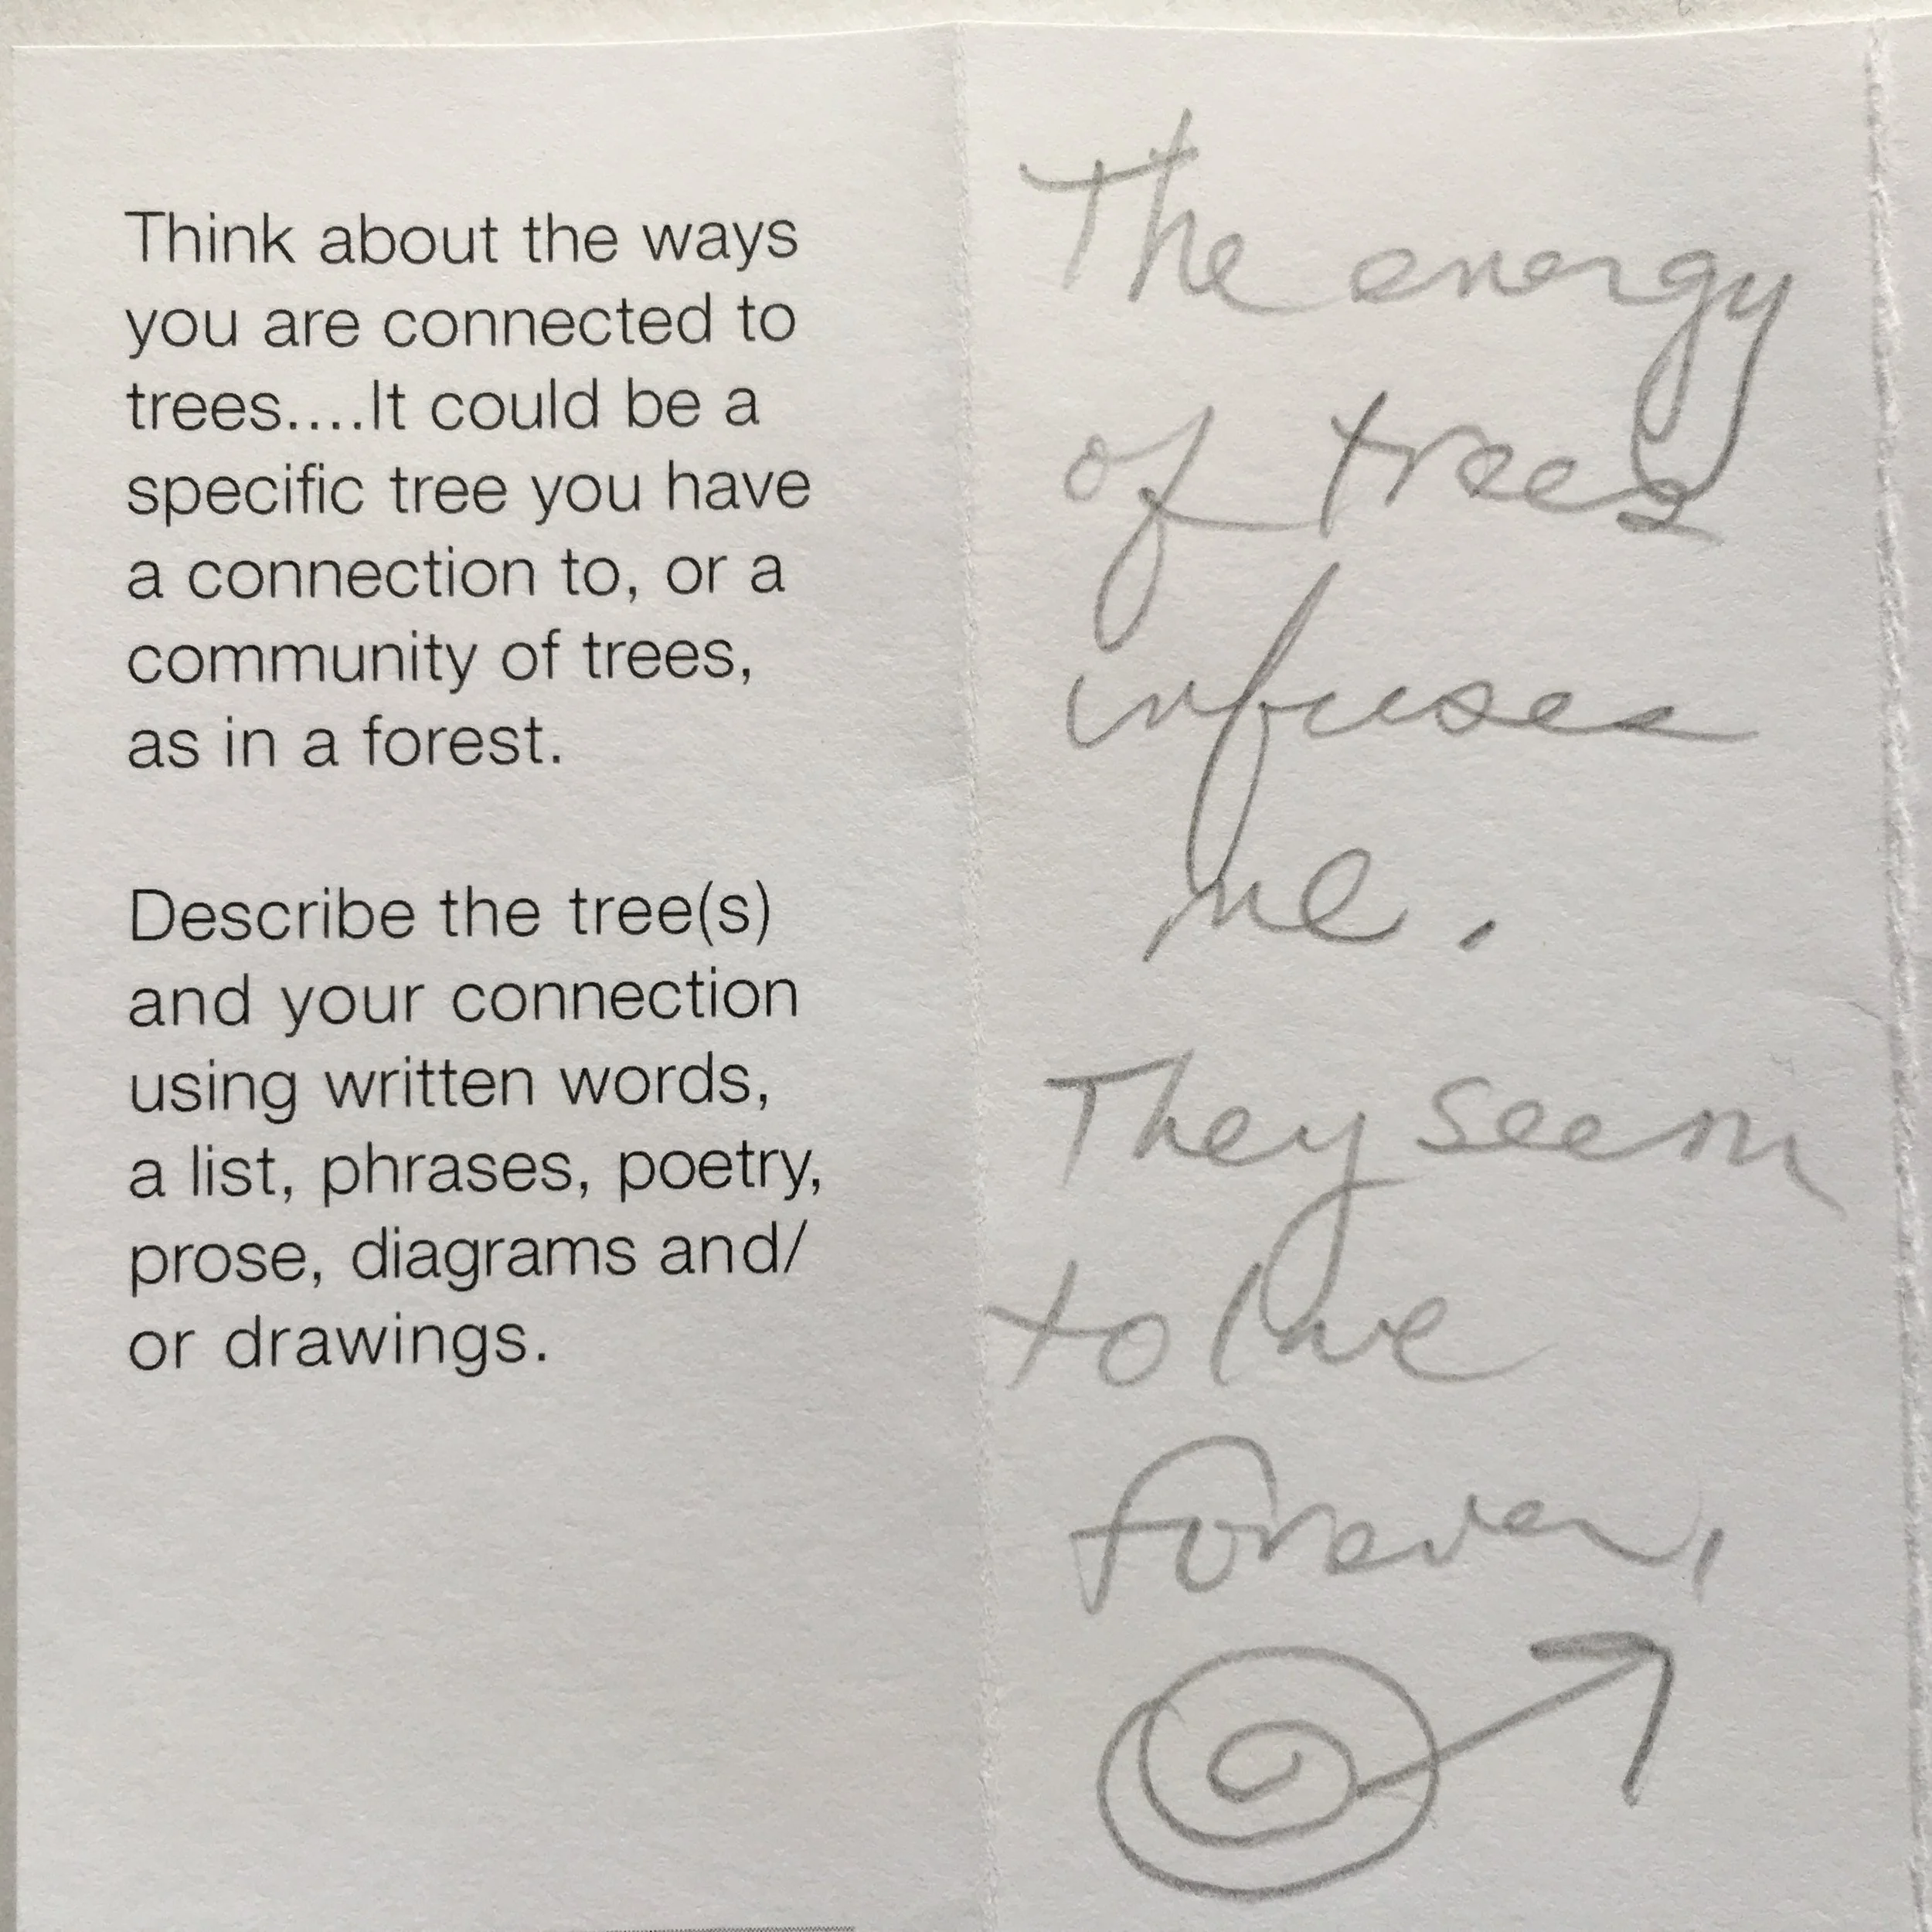 Think about the ways
you are connected to
trees....It could be a
specific tree you have
a connection to, or a
community of trees,
as in a forest.
Describe the tree(s)
and your connection
using written words,
a list, phrases, poetry,
prose, diagrams and/
or drawings.
The energy
of trees
infuses
me.
They seem
to live
forever,